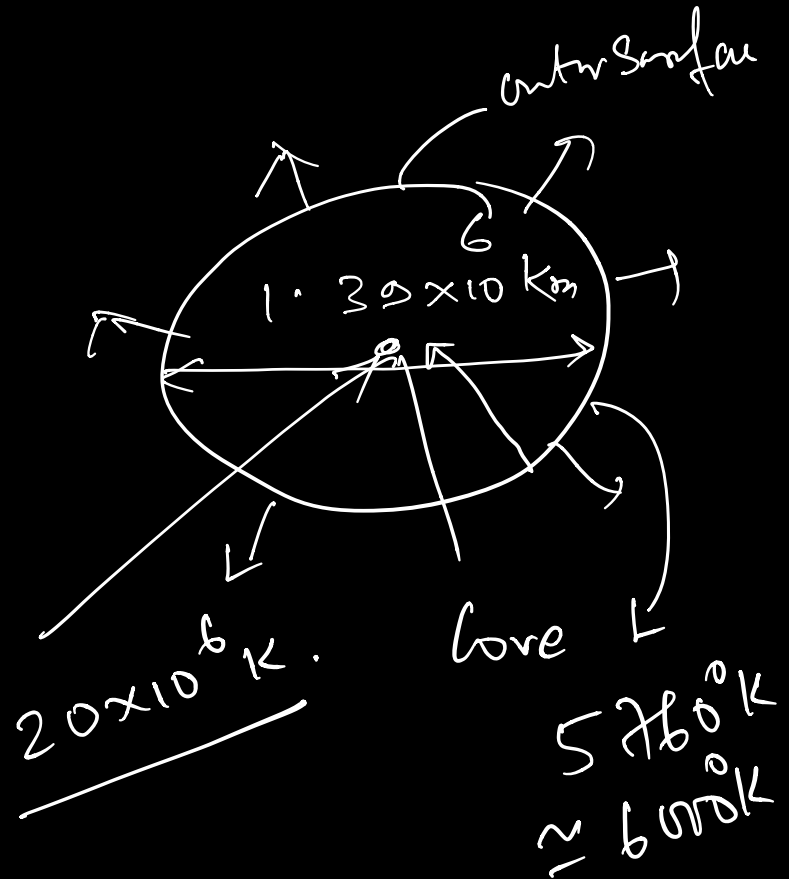 outer Surface
1.39×10⁶ Km
20×10⁶ K.
Core
5760°K
≃ 6000°K